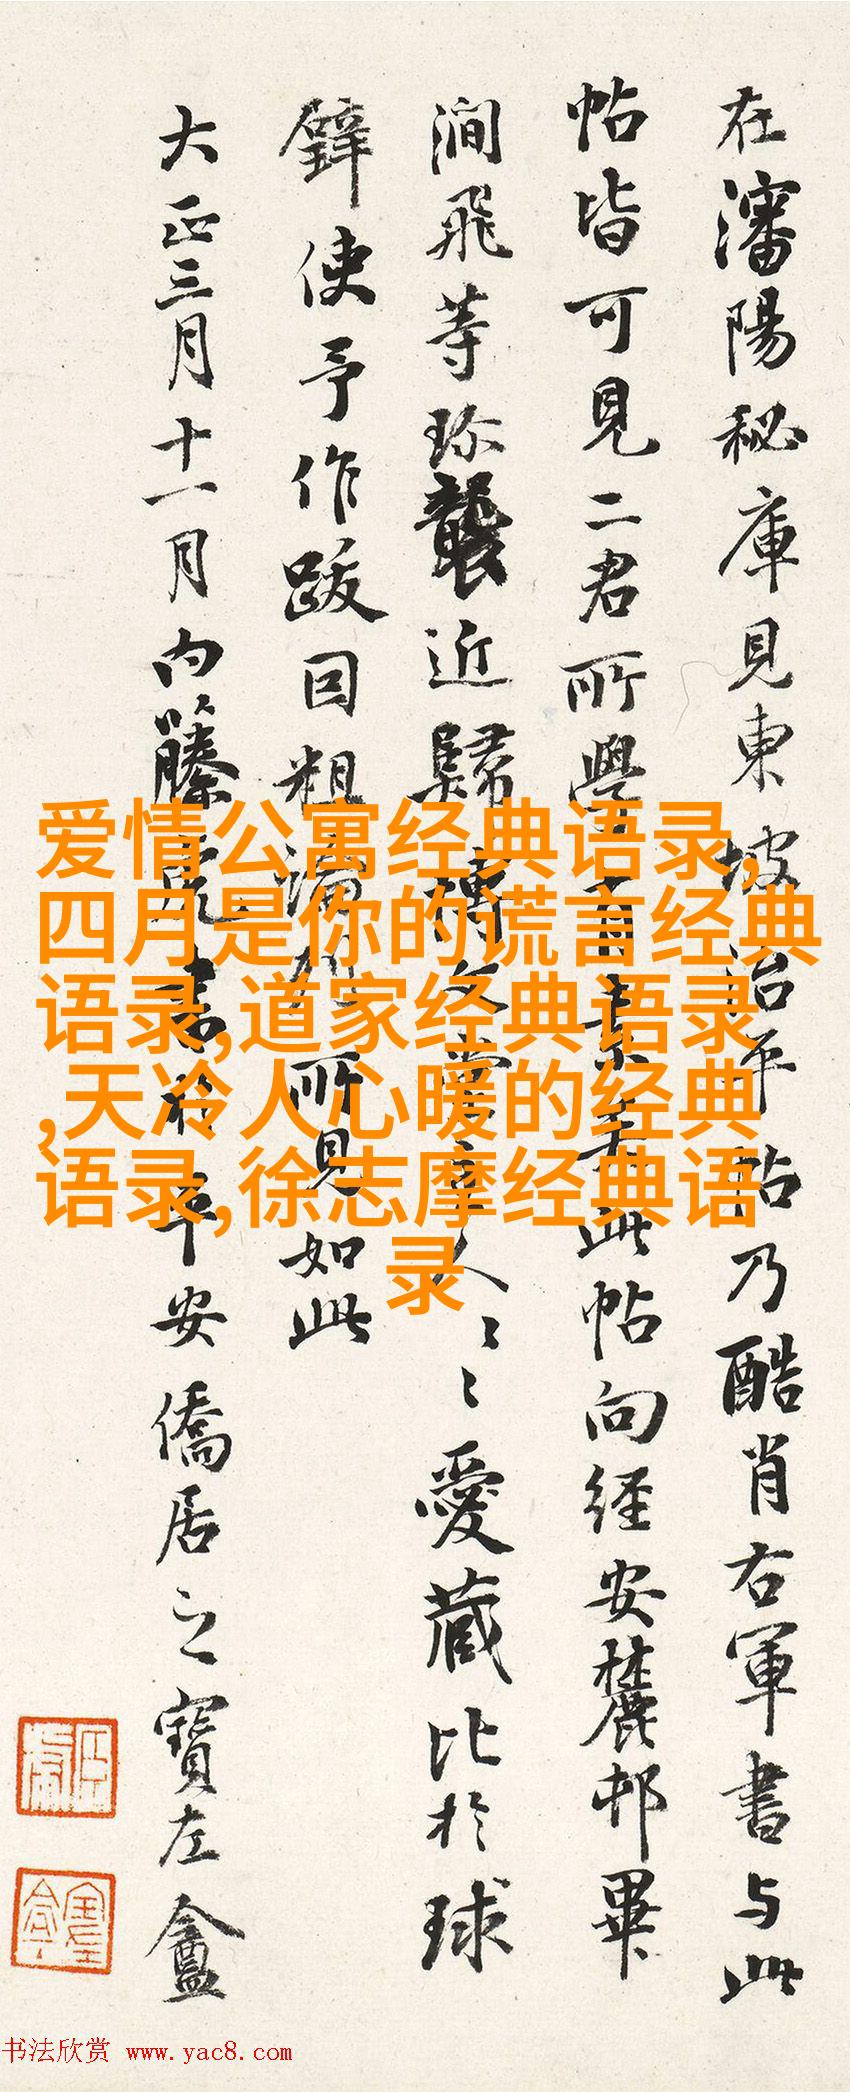 在瀋陽秘庫見東坡治平帖乃酷肖右軍書与此
帖皆可見二君所學
此帖向經安麓邨畢
澗飛等珎襲近歸
愛藏比於球
鐸使予作跋因粗
所見如此
大正三月十一月内藤
書於平安僑居之寶左盦
爱情公寓经典语录,
四月是你的谎言经典
语录,道家经典语录
,天冷人心暖的经典
语录,徐志摩经典语
录
书法欣赏 www.yac8.com